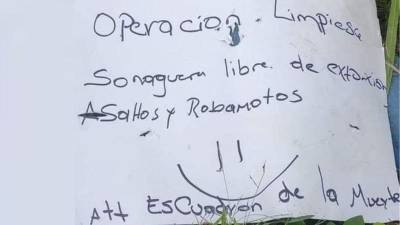 Operacion. Limpiesa
Sonaguera libre. de extorcion
ASaltos y Robamotos
Att EsCuadron de la Muerte